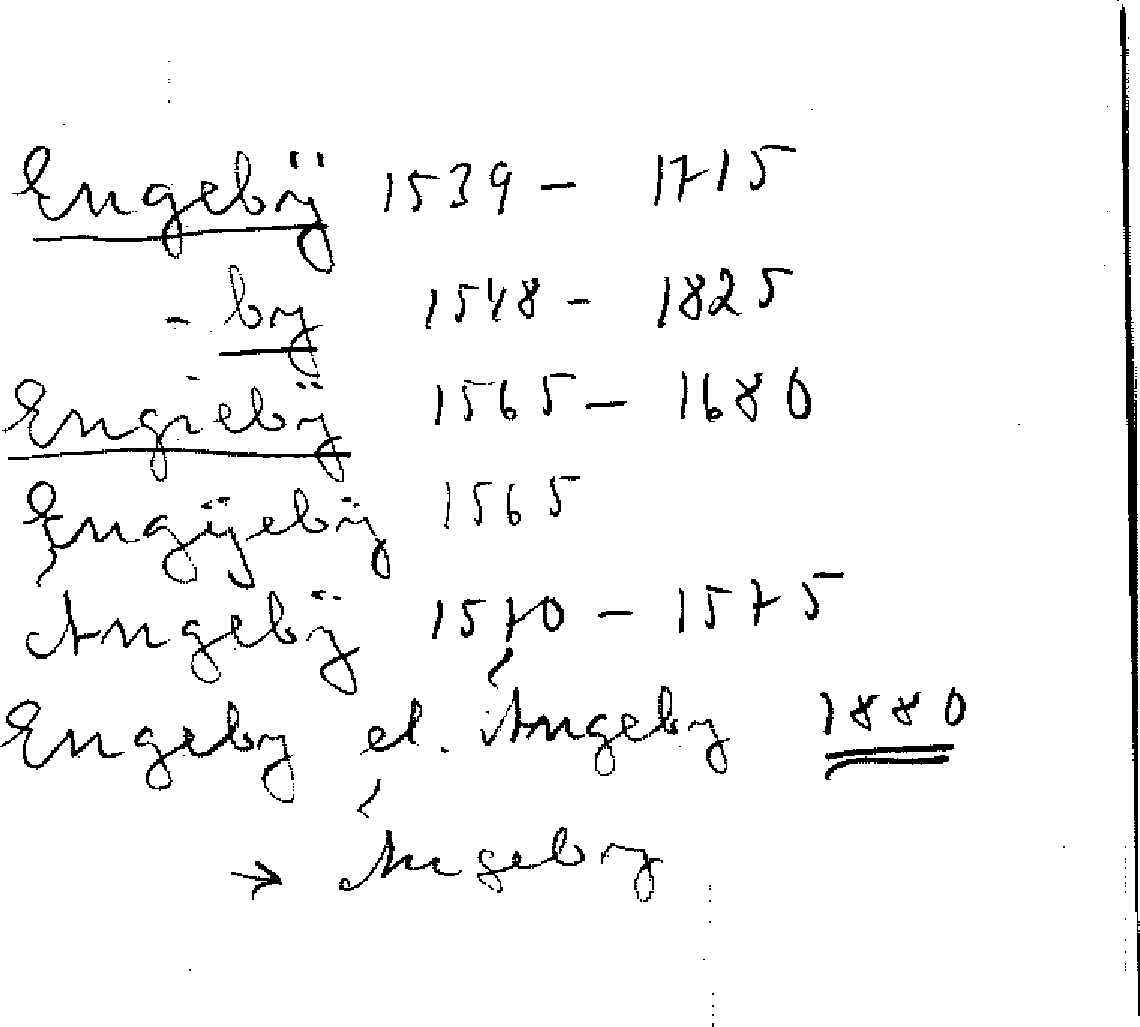 Engebÿ 1539 - 1715
- by 1548 - 1825
Engiebÿ 1565 - 1680
Engÿebÿ 1565
Angebÿ 1570 - 1575
Engeby el. Ängeby 1880
→ Ängeby